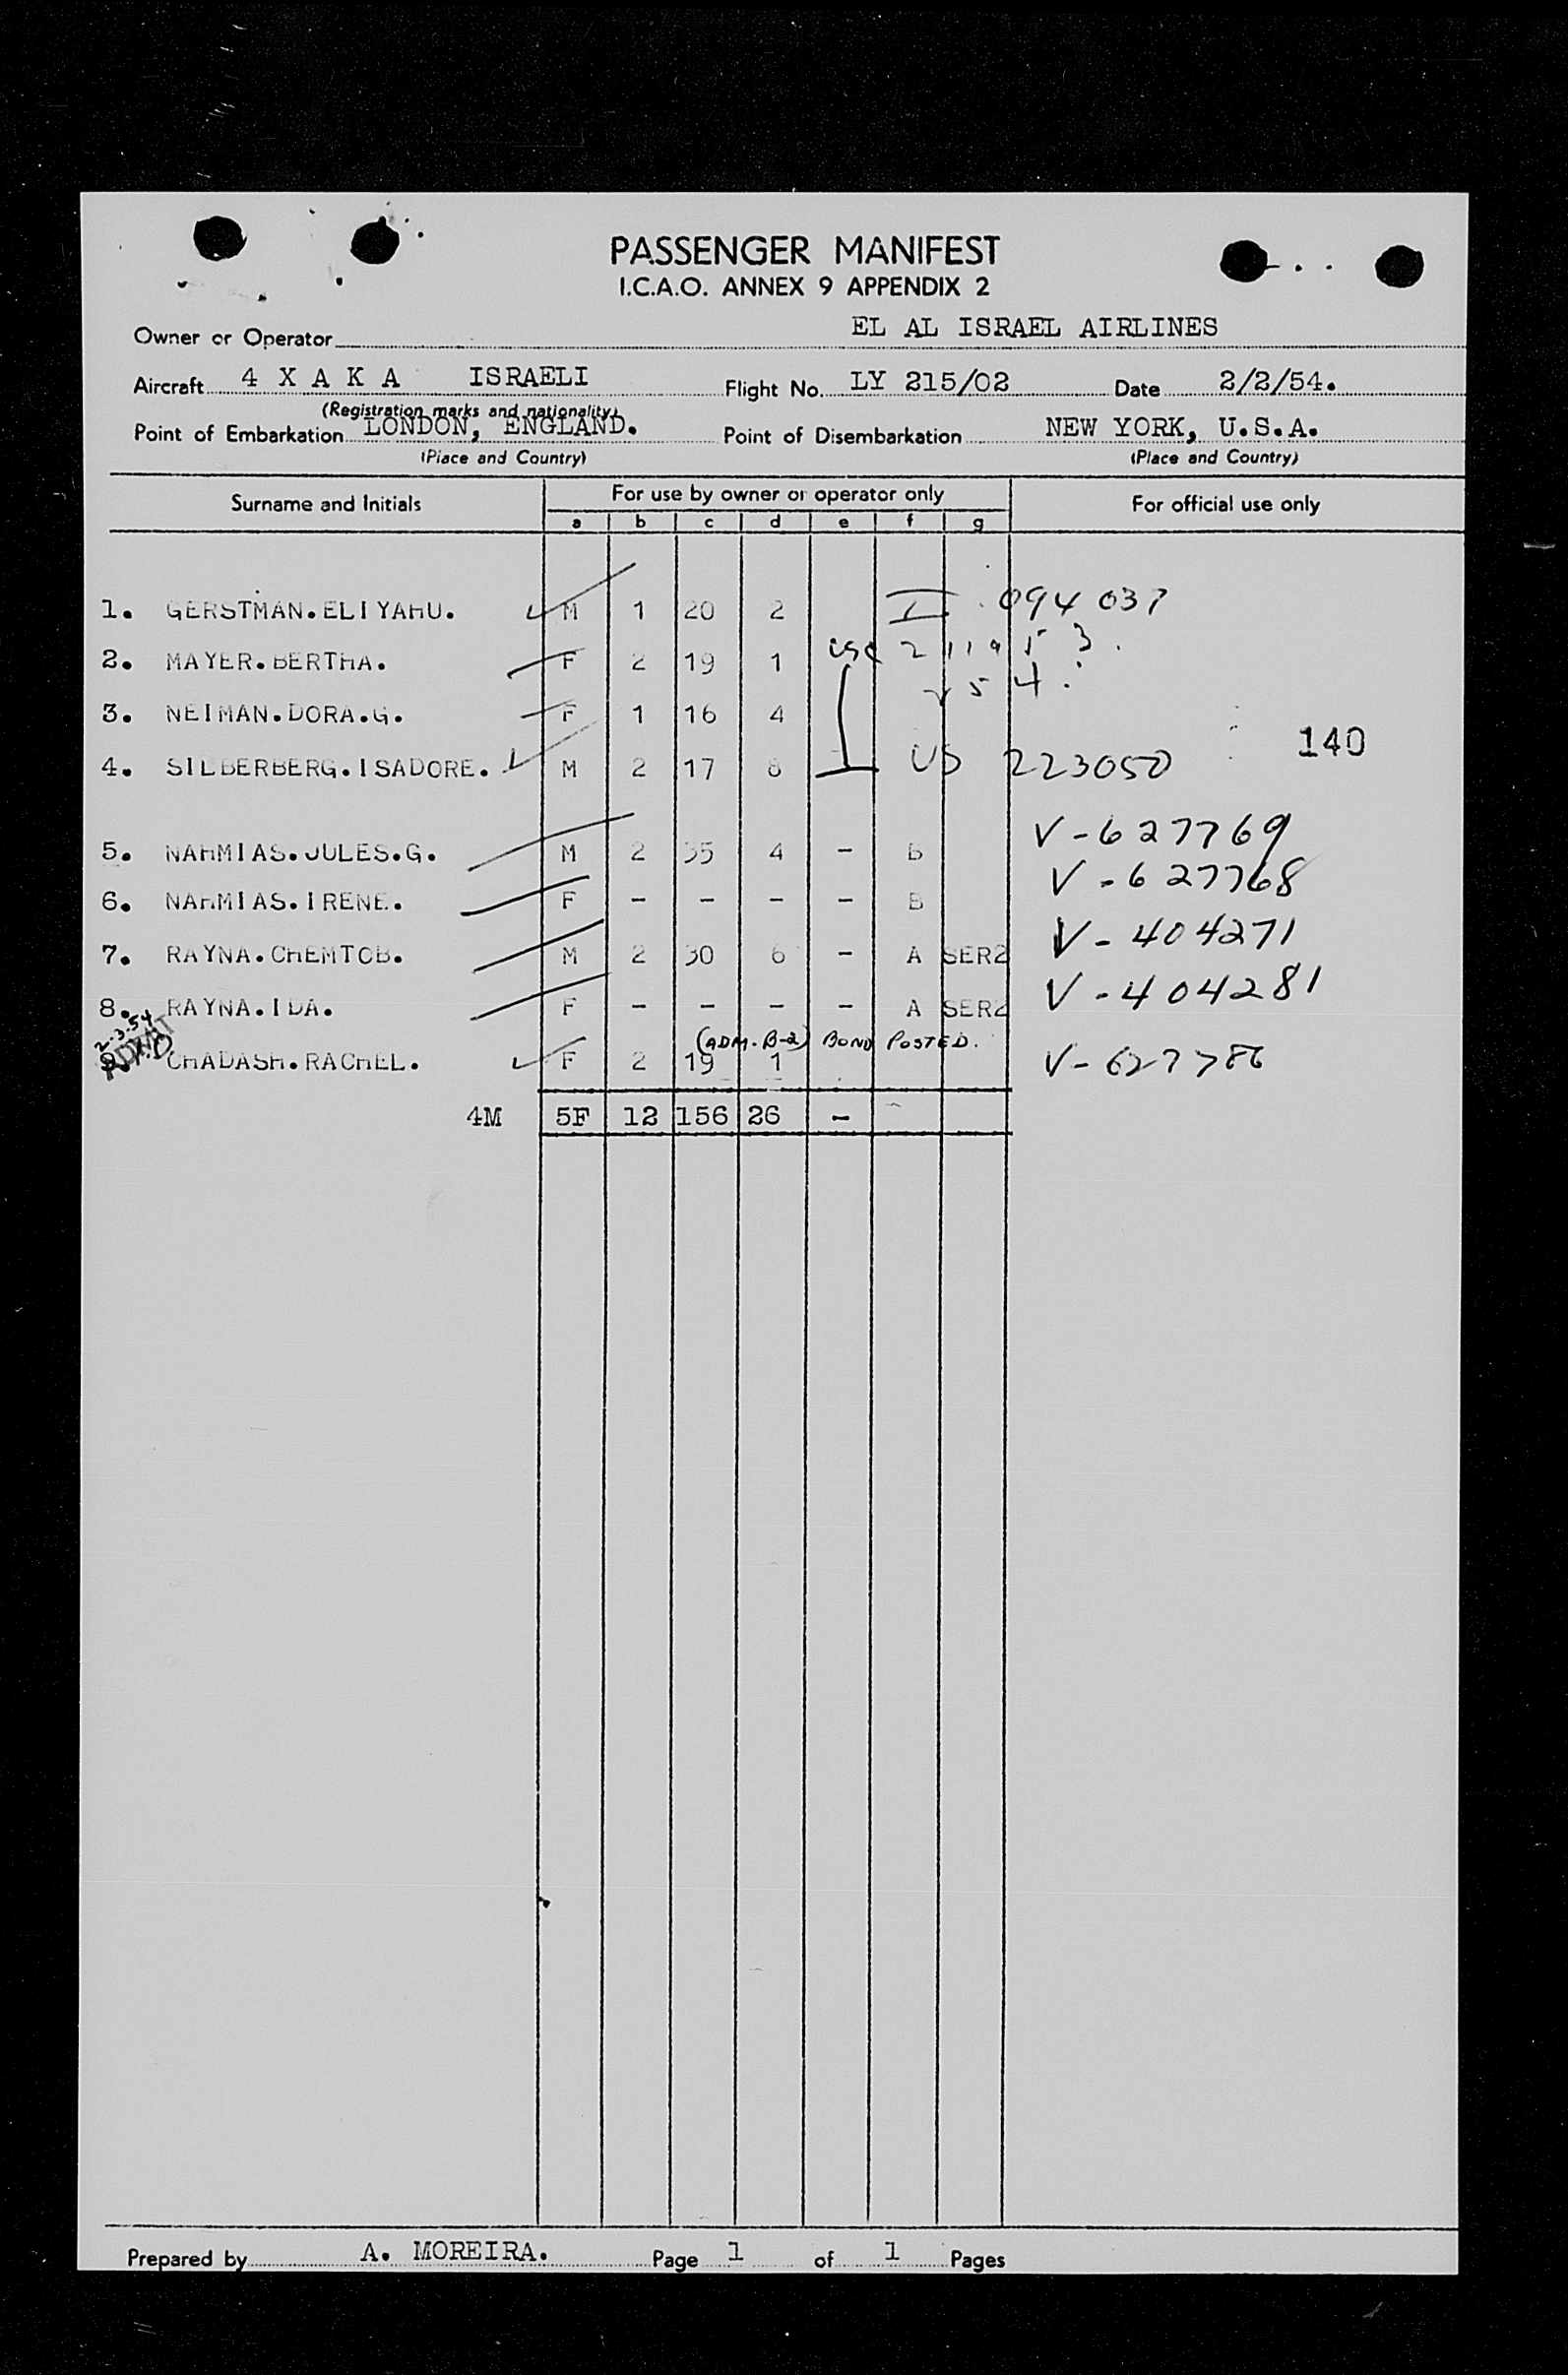 PASSENGER MANIFEST
I.C.A.O. ANNEX 9 APPENDIX 2
Owner or Operator EL AL ISRAEL AIRLINES
Aircraft 4 X A K A ISRAELI Flight No. LY 215/02 Date 2/2/54.
(Registration marks and nationality)
Point of Embarkation LONDON, ENGLAND. Point of Disembarkation NEW YORK, U.S.A.
(Place and Country) (Place and Country)
Surname and Initials For use by owner or operator only For official use only
a b c d e f g
1. GERSTMAN.ELIYAHU. M 1 20 2 I 094 037
2. MAYER.BERTHA. F 2 19 1 usc 211953.
254.
3. NEIMAN.DORA.G. F 1 16 4
140
4. SILBERBERG.ISADORE. M 2 17 8 US 223050
5. NAHMIAS.JULES.G. M 2 35 4 - B V-627769
6. NAHMIAS.IRENE. F - - - - B V-627768
7. RAYNA.CHEMTOB. M 2 30 6 - A SER2 V-404271
8. RAYNA.IDA. F - - - - A SER2 V-404281
2.3.54
(ADM. B-2) BOND POSTED.
9. CHADASH.RACHEL. F 2 19 1 V-627786
4M 5F 12 156 26 -
Prepared by A. MOREIRA. Page 1 of 1 Pages